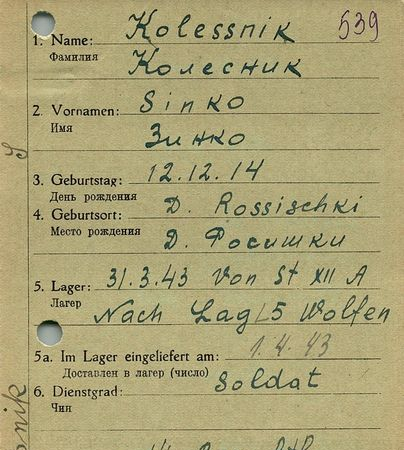 539
1. Name: Kolessnik
Фамилия Колесник
2. Vornamen: Sinko
Имя Зинко
3. Geburtstag: 12.12.14
День рождения
4. Geburtsort: D. Rossischki
Место рождения Д. Росишки
5. Lager: 31.3.43 Von St XII A
Лагер
Nach Lag 5 Wolfen
5a. Im Lager eingeliefert am: 1.4.43
Доставлен в лагер (число)
6. Dienstgrad: Soldat
Чин